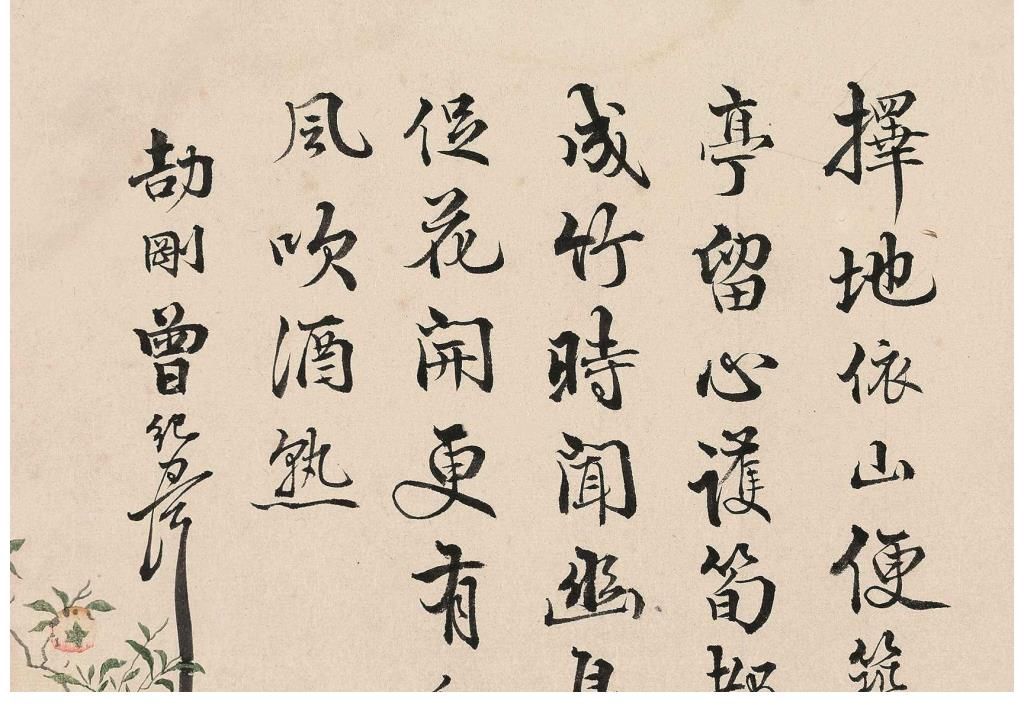 擇地依山便築
亭留心護筍
成竹時聞幽
促花開更有
風吹酒熟
劼剛曾紀澤